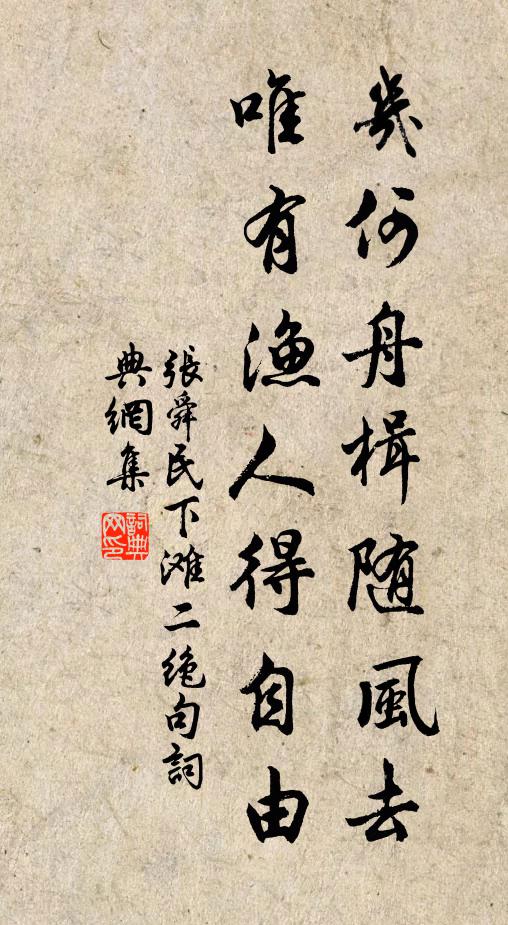 幾何舟楫随風去
唯有漁人得自由
張舜民下滩二绝句詞
典網集
詞典
网印